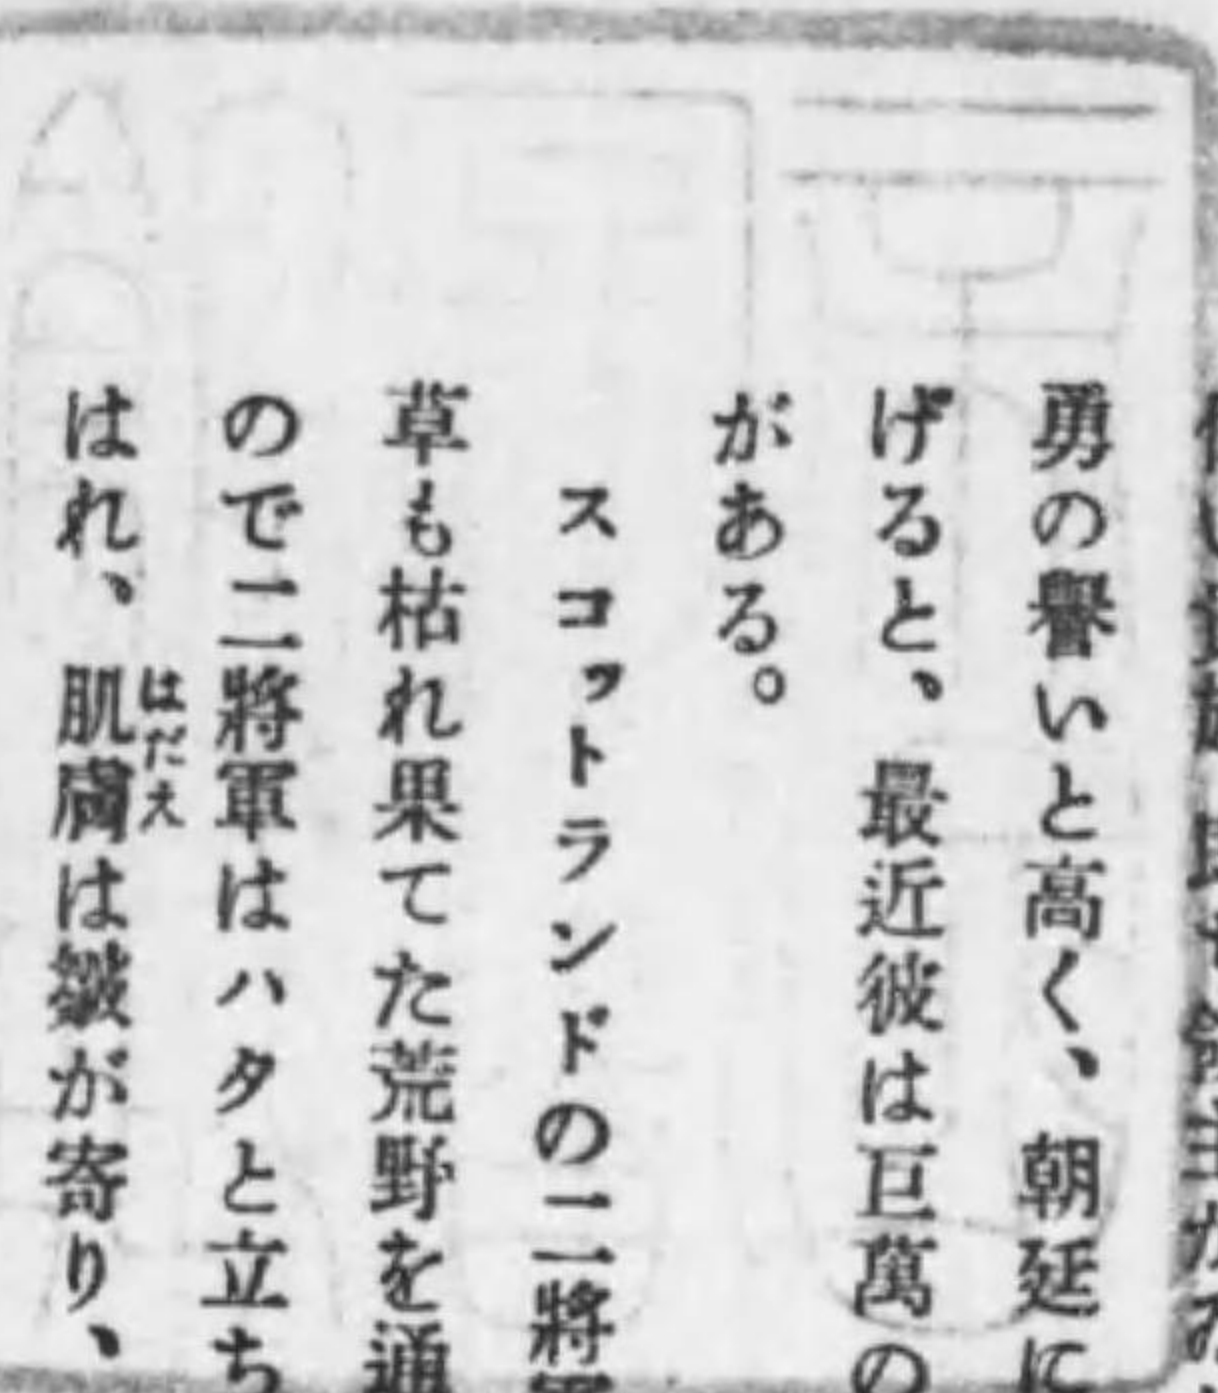 勇の譽いと高く、朝延に
げると、最近彼は巨萬の
がある。
スコットランドの二將軍
草も枯れ果てた荒野を通
ので二將軍はハタと立ち
はれ、肌膚は皺が寄り、
はだえ